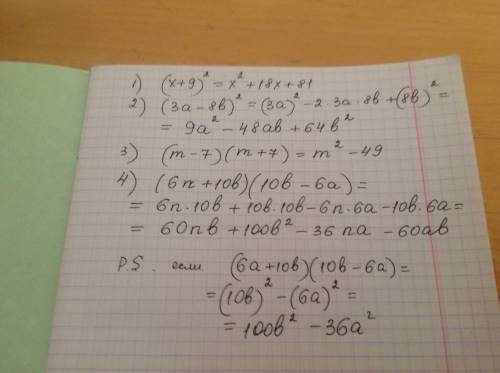 1) (x+9)² = x² + 18x + 81
2) (3a – 8b)² = (3a)² – 2·3a·8b + (8b)² =
= 9a² – 48ab + 64b²
3) (m – 7)(m + 7) = m² – 49
4) (6n + 10b)(10b – 6a) =
= 6n·10b + 10b·10b – 6n·6a – 10b·6a =
= 60nb + 100b² – 36na – 60ab
P.S. если (6a + 10b)(10b – 6a) =
= (10b)² – (6a)² =
= 100b² – 36a²